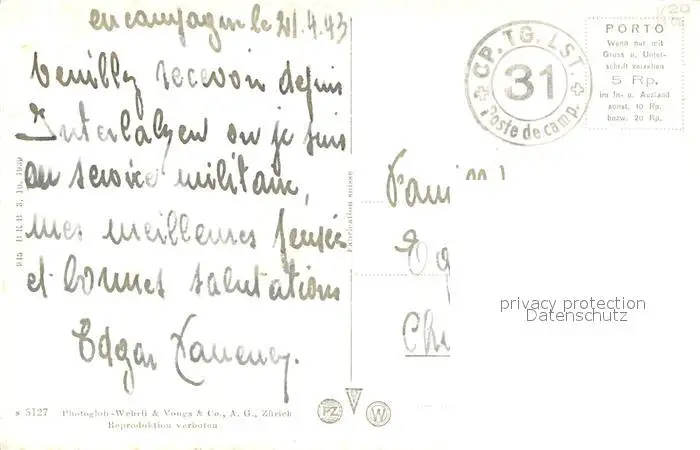 en campagne le 21.4.43
Veuillez recevoir depuis
Interlaken ou je suis
au service militaire,
mes meilleures pensées
et bonnes salutations
Edgar
CP. TG. LST.
31
Poste de camp.
PORTO
Wenn nur mit
Gruss u. Unter-
schrift versehen
5 Rp.
im In- u. Ausland
sonst. 10 Rp.
bezw. 20 Rp.
Fabrication suisse
B.R.B. 3. 10. 1939
privacy protection
Datenschutz
s 5127 Photoglob-Wehrli & Vouga & Co., A. G., Zürich
Reproduktion verboten
PZ
W